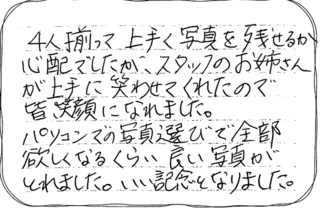 4人揃って上手く写真を残せるか
心配でしたが、スタッフのお姉さん
が上手に笑わせてくれたので
皆笑顔になれました。
パソコンでの写真選びで全部
欲しくなるくらい良い写真が
とれました。いい記念となりました。